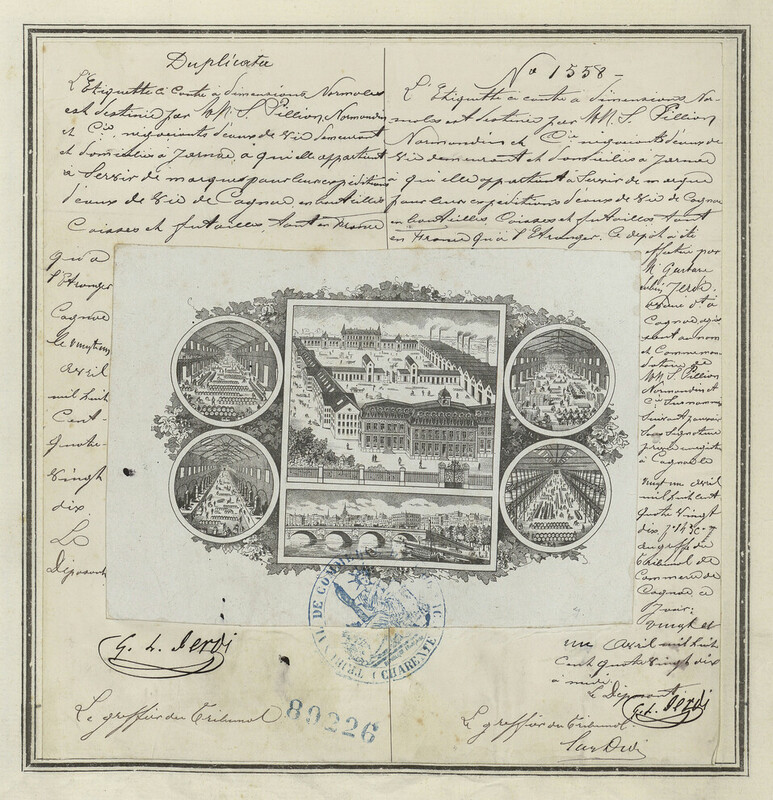 Duplicata
L'Etiquette ci contre à dimensions Normales
est destinée par MM. S. Pillion, Normandin
et Cie. négociants d'eaux de vie demeurant
et domiciliés à Jarnac, à qui elle appartient
à Servir de marque pour leurs expéditions
d'eaux de vie de Cognac en bouteilles
Caisses et futailles tant en France
qu'à
l'Etranger
Cognac
le vingt un
avril
mil huit
Cent-
quatre
vingt
dix.
Le
Déposant
G. L. Verdi
Le greffier du Tribunal
89226
No 1558-
L'Etiquette ci contre à dimensions Nor-
males est destinée par MM. S. Pillion
Normandin et Cie négociants d'eaux de
vie demeurant et domiciliés à Jarnac
à qui elle appartient à Servir de marque
pour leurs expéditions d'eaux de vie de Cognac
en bouteilles Caisses et futailles tant
en France qu'à l'Etranger. Ce dépôt a été
effectué par
M. Gustave
à
Cognac
au nom
et Comme man-
dataire de
MM. S. Pillion
Normandin et
Cie
Suivant pouvoir
Sous signature
privée enregistré
à Cognac le
vingt un avril
mil huit cent
quatre vingt
dix
au greffe du
Tribunal de
Commerce de
Cognac ce
jour
vingt et
un avril mil huit
Cent quatre vingt dix
à midi.
Le Déposant
G. L. Verdi
Le greffier du Tribunal
TRIBUNAL DE COMMERCE
CHARENTE